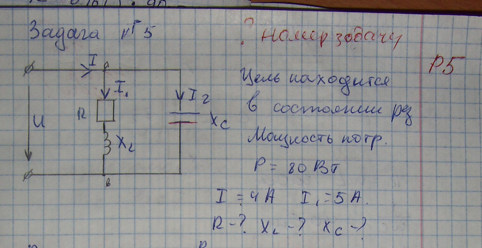 Задача №5
? номер задачу
P5
Цепь находится
в состоянии рез
Мощность потр.
P = 80 Вт
I = 4A I₁ = 5A.
R-? X_L-? X_C-?
I
I₁
I₂
R
X_L
X_C
U